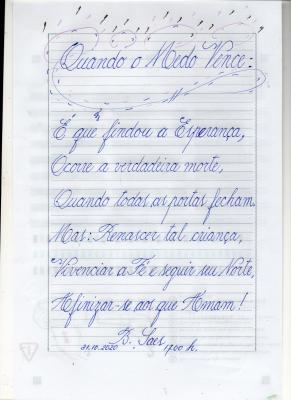 Quando o Medo Vence:
É que findou a Esperança,
Ocorre a verdadeira morte,
Quando todas as portas fecham.
Mas: Renascer tal criança,
Vivenciar a Fé e seguir seu Norte,
Afinizar-se aos que Amam!
B. Saes
31.10.2020 17:00 h.